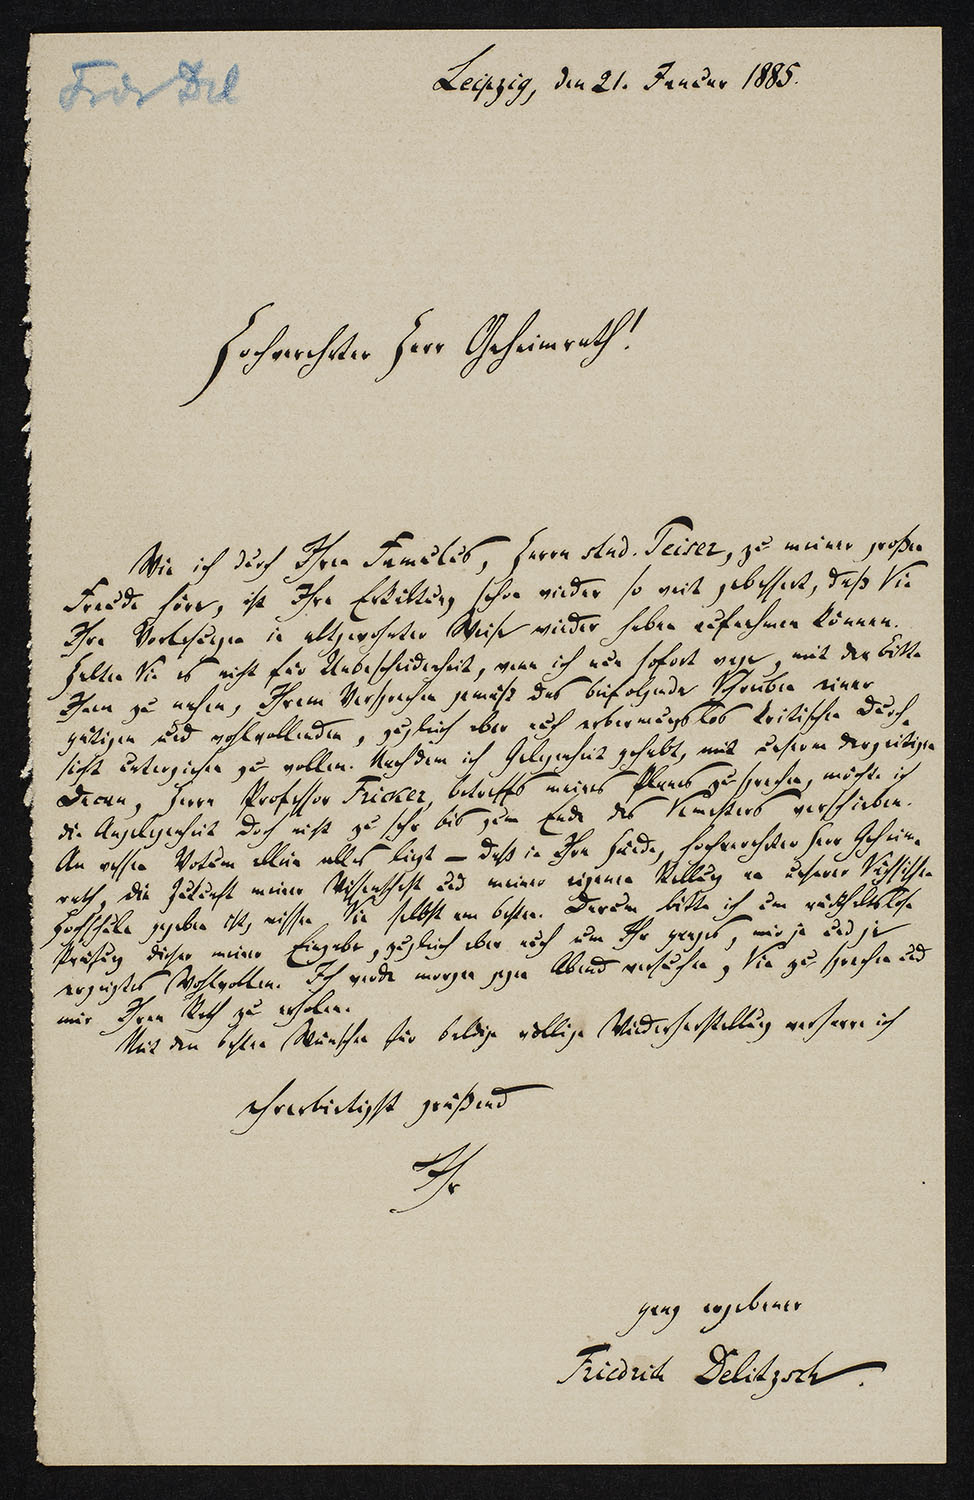 Frdr Del
Leipzig, den 21. Januar 1885.
Hochverehrter Herr Geheimrath!
Wie ich durch Ihren Famulus, Herrn stud. Teiser, zu meiner großen
Freude höre, ist Ihre Erkältung schon wieder so weit gebessert, daß Sie
Ihre Vorlesungen in altgewohnter Weise wieder haben aufnehmen können.
Halten Sie es nicht für Unbescheidenheit, wenn ich nun sofort wage, mit der Bitte
Ihnen zu nahen, Ihrem Versprechen gemäß das beifolgende Schreiben einer
gütigen und wohlwollenden, zugleich aber auch erbarmungslos kritischen Durch-
sicht unterziehen zu wollen. Nachdem ich Gelegenheit gehabt, mit unserm derzeitigen
Decan, Herrn Professor Fricker, betreffs meines Planes zu sprechen, möchte ich
die Angelegenheit doch nicht zu sehr bis zum Ende des Semesters verschieben.
An wessen Votum allein alles liegt – daß in Ihre Hände, hochverehrter Herr Geheim-
rath, die Zukunft meiner Wissenschaft und meiner eigenen Stellung an unserer Sächsischen
Hochschule gegeben ist, wissen Sie selbst am besten. Darum bitte ich um rückhaltslose
Prüfung dieser meiner Eingabe, zugleich aber auch um Ihr mir je und je
erzeigtes Wohlwollen. Ich werde morgen gegen Abend versuchen, Sie zu sprechen und
mir Ihren Rath zu erholen.
Mit den besten Wünschen für baldige völlige Wiederherstellung verharre ich
ehrerbietigst grüßend
Ihr
ganz ergebener
Friedrich Delitzsch.